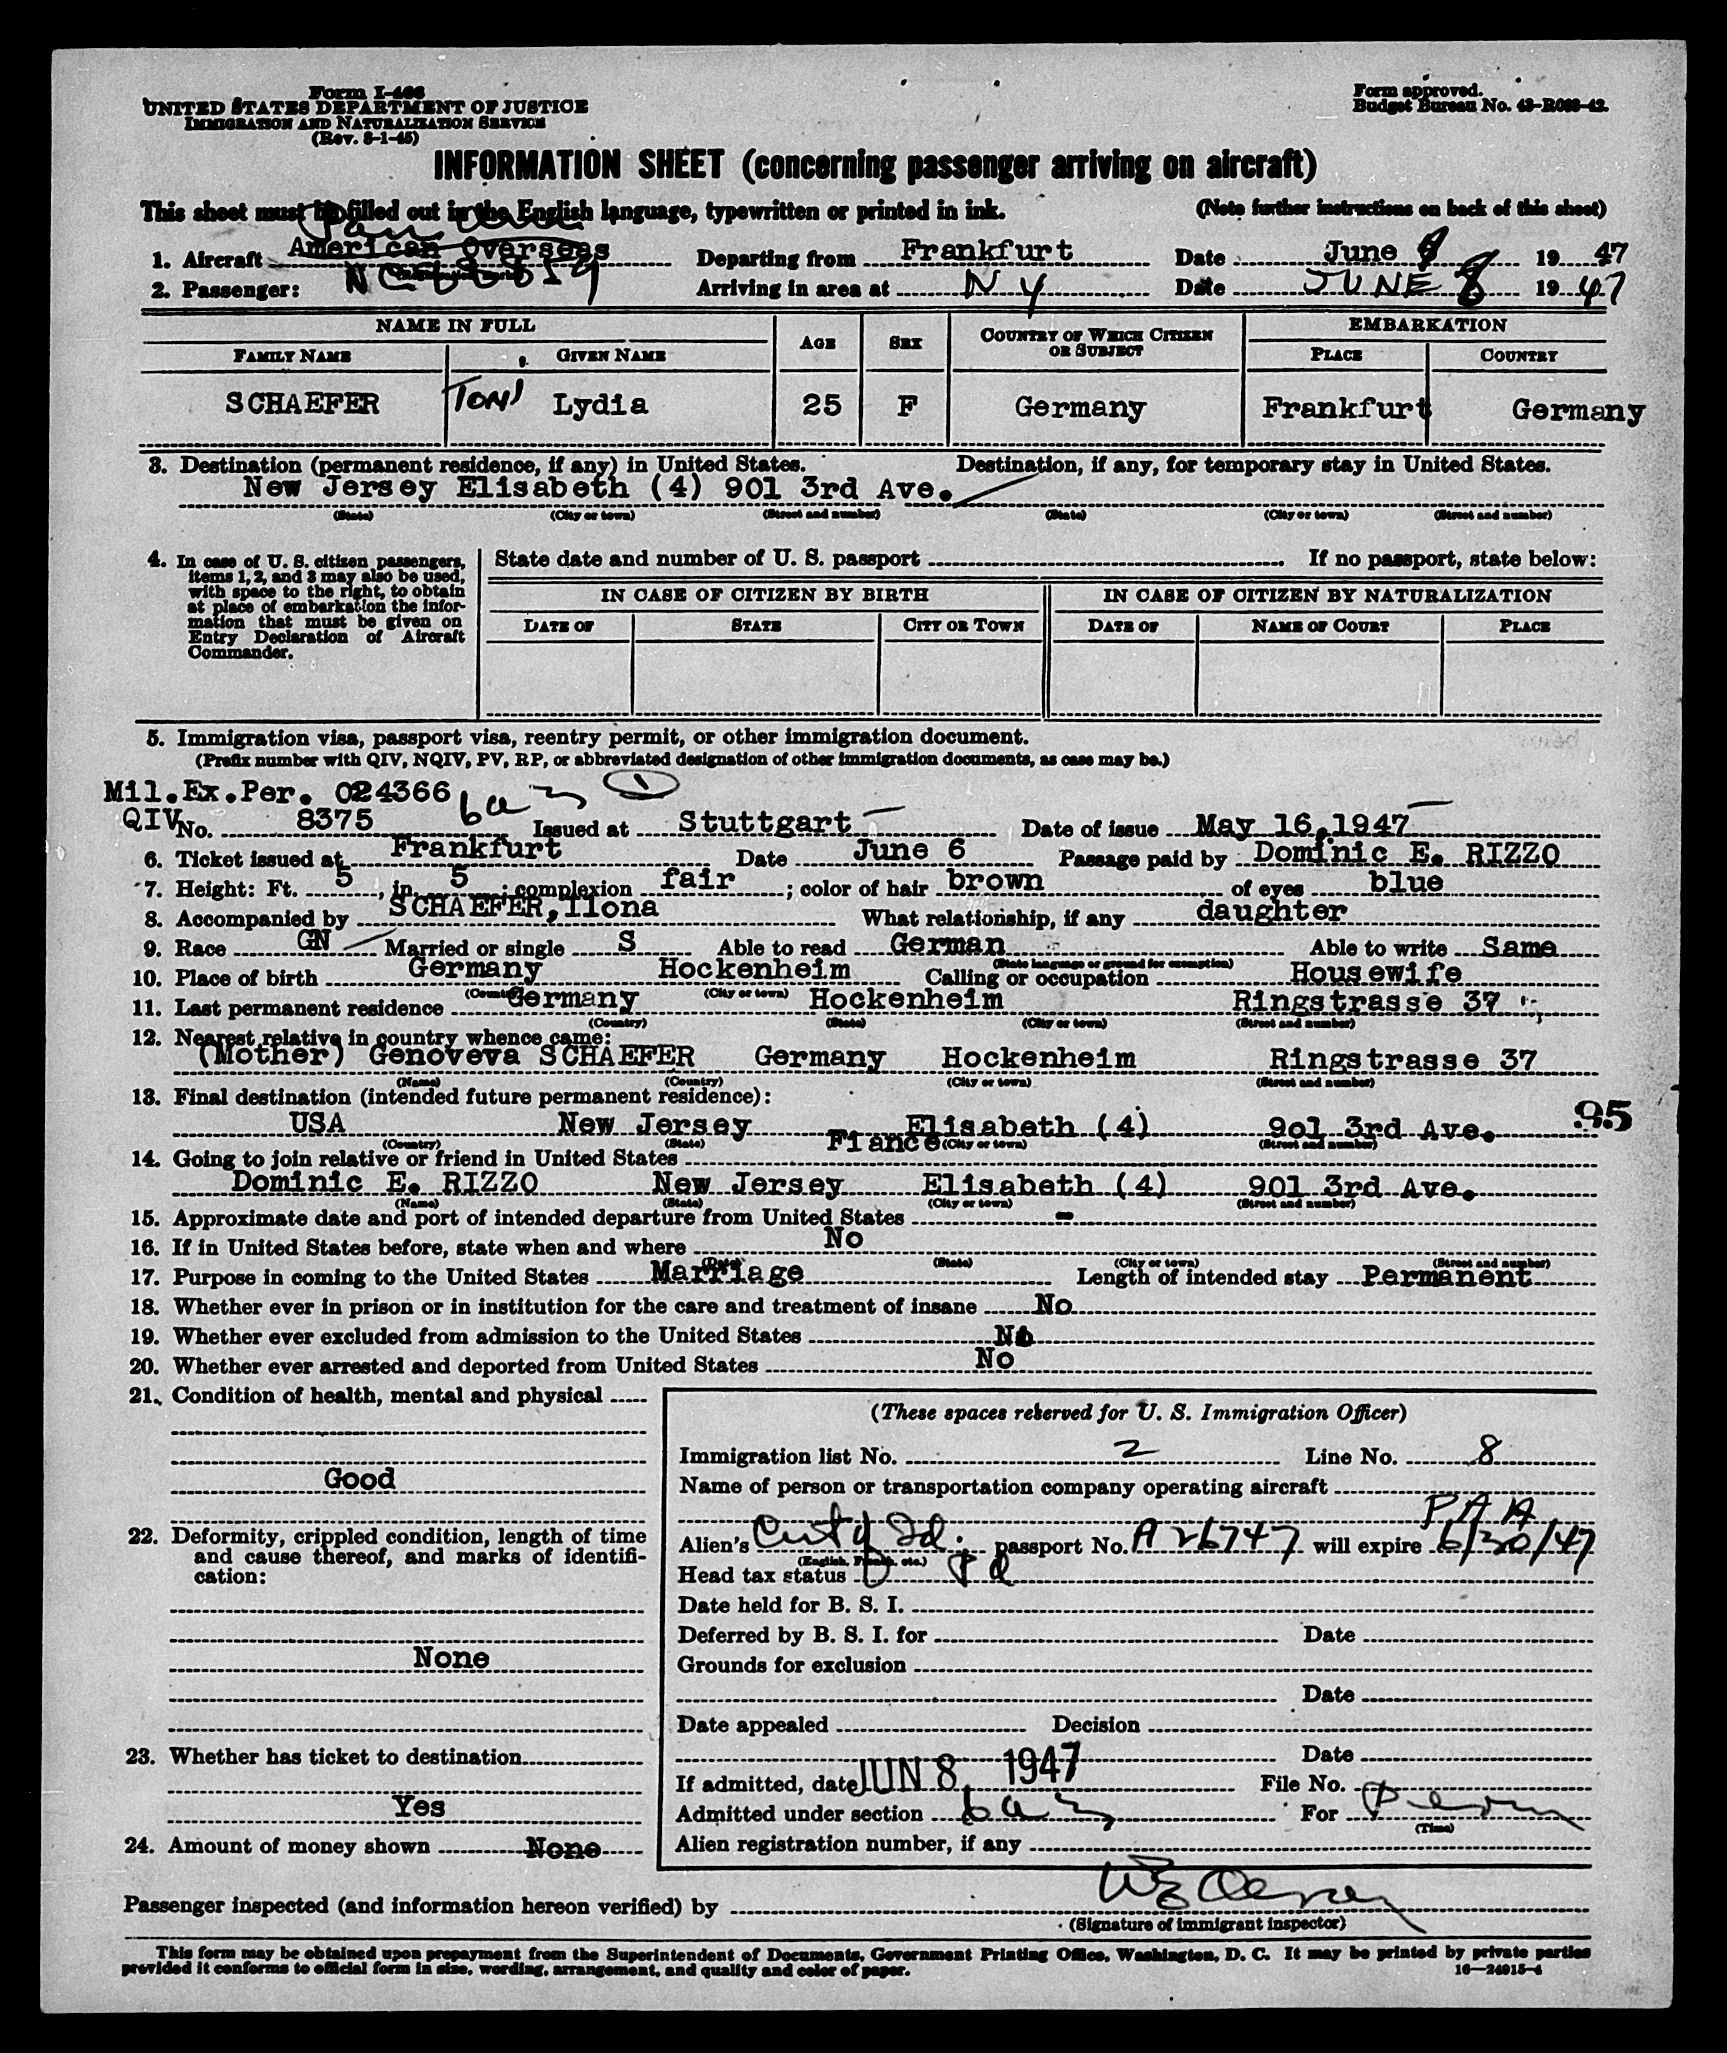 Form I-466
UNITED STATES DEPARTMENT OF JUSTICE
IMMIGRATION AND NATURALIZATION SERVICE
(Rev. 8-1-45)
Form approved.
Budget Bureau No. 43-R063-42.
INFORMATION SHEET (concerning passenger arriving on aircraft)
This sheet must be filled out in the English language, typewritten or printed in ink. (Note further instructions on back of this sheet)
1. Aircraft American Overseas Departing from Frankfurt Date June 1947
2. Passenger: Arriving in area at N Y Date JUNE 8 1947
NAME IN FULL AGE SEX COUNTRY OF WHICH CITIZEN OR SUBJECT EMBARKATION
FAMILY NAME GIVEN NAME PLACE COUNTRY
SCHAEFER TONI Lydia 25 F Germany Frankfurt Germany
3. Destination (permanent residence, if any) in United States. Destination, if any, for temporary stay in United States.
New Jersey Elisabeth (4) 901 3rd Ave.
(State) (City or town) (Street and number) (State) (City or town) (Street and number)
4. In case of U. S. citizen passengers, items 1, 2, and 3 may also be used, with space to the right, to obtain at place of embarkation the information that must be given on Entry Declaration of Aircraft Commander.
State date and number of U. S. passport If no passport, state below:
IN CASE OF CITIZEN BY BIRTH IN CASE OF CITIZEN BY NATURALIZATION
DATE OF STATE CITY OR TOWN DATE OF NAME OF COURT PLACE
5. Immigration visa, passport visa, reentry permit, or other immigration document.
(Prefix number with QIV, NQIV, PV, RP, or abbreviated designation of other immigration documents, as case may be.)
Mil.Ex.Per. 024366 1
QIV No. 8375 6a3 Issued at Stuttgart Date of issue May 16,1947
6. Ticket issued at Frankfurt Date June 6 Passage paid by Dominic E. RIZZO
7. Height: Ft. 5, in. 5; complexion fair; color of hair brown of eyes blue
8. Accompanied by SCHAEFER,Ilona What relationship, if any daughter
9. Race GN Married or single S Able to read German Able to write Same
(State language or ground for exemption)
10. Place of birth Germany Hockenheim Calling or occupation Housewife
(Country) (City or town)
11. Last permanent residence Germany Hockenheim Ringstrasse 37
(Country) (State) (City or town) (Street and number)
12. Nearest relative in country whence came:
(Mother) Genoveva SCHAEFER Germany Hockenheim Ringstrasse 37
(Name) (Country) (City or town) (Street and number)
13. Final destination (intended future permanent residence):
USA New Jersey Elisabeth (4) 9o1 3rd Ave. 95
(Country) (State) (City or town) (Street and number)
14. Going to join relative or friend in United States Fiance
Dominic E. RIZZO New Jersey Elisabeth (4) 901 3rd Ave.
(Name) (State) (City or town) (Street and number)
15. Approximate date and port of intended departure from United States -
16. If in United States before, state when and where No
(Date) (State) (City or town) (Street and number)
17. Purpose in coming to the United States Marriage Length of intended stay Permanent
18. Whether ever in prison or in institution for the care and treatment of insane No
19. Whether ever excluded from admission to the United States No
20. Whether ever arrested and deported from United States No
21. Condition of health, mental and physical
Good
22. Deformity, crippled condition, length of time and cause thereof, and marks of identification:
None
23. Whether has ticket to destination
Yes
24. Amount of money shown None
(These spaces reserved for U. S. Immigration Officer)
Immigration list No. 2 Line No. 8
Name of person or transportation company operating aircraft
PAA
Alien's Cert of Id. passport No. A 26747 will expire 6/30/47
(English, French, etc.)
Head tax status Pd
Date held for B. S. I.
Deferred by B. S. I. for Date
Grounds for exclusion
Date
Date appealed Decision
Date
If admitted, date JUN 8 1947 File No.
Admitted under section 6a3 For Perm
(Time)
Alien registration number, if any
Passenger inspected (and information hereon verified) by
(Signature of immigrant inspector)
This form may be obtained upon prepayment from the Superintendent of Documents, Government Printing Office, Washington, D. C. It may be printed by private parties
provided it conforms to official form in size, wording, arrangement, and quality and color of paper. 16—24915-4